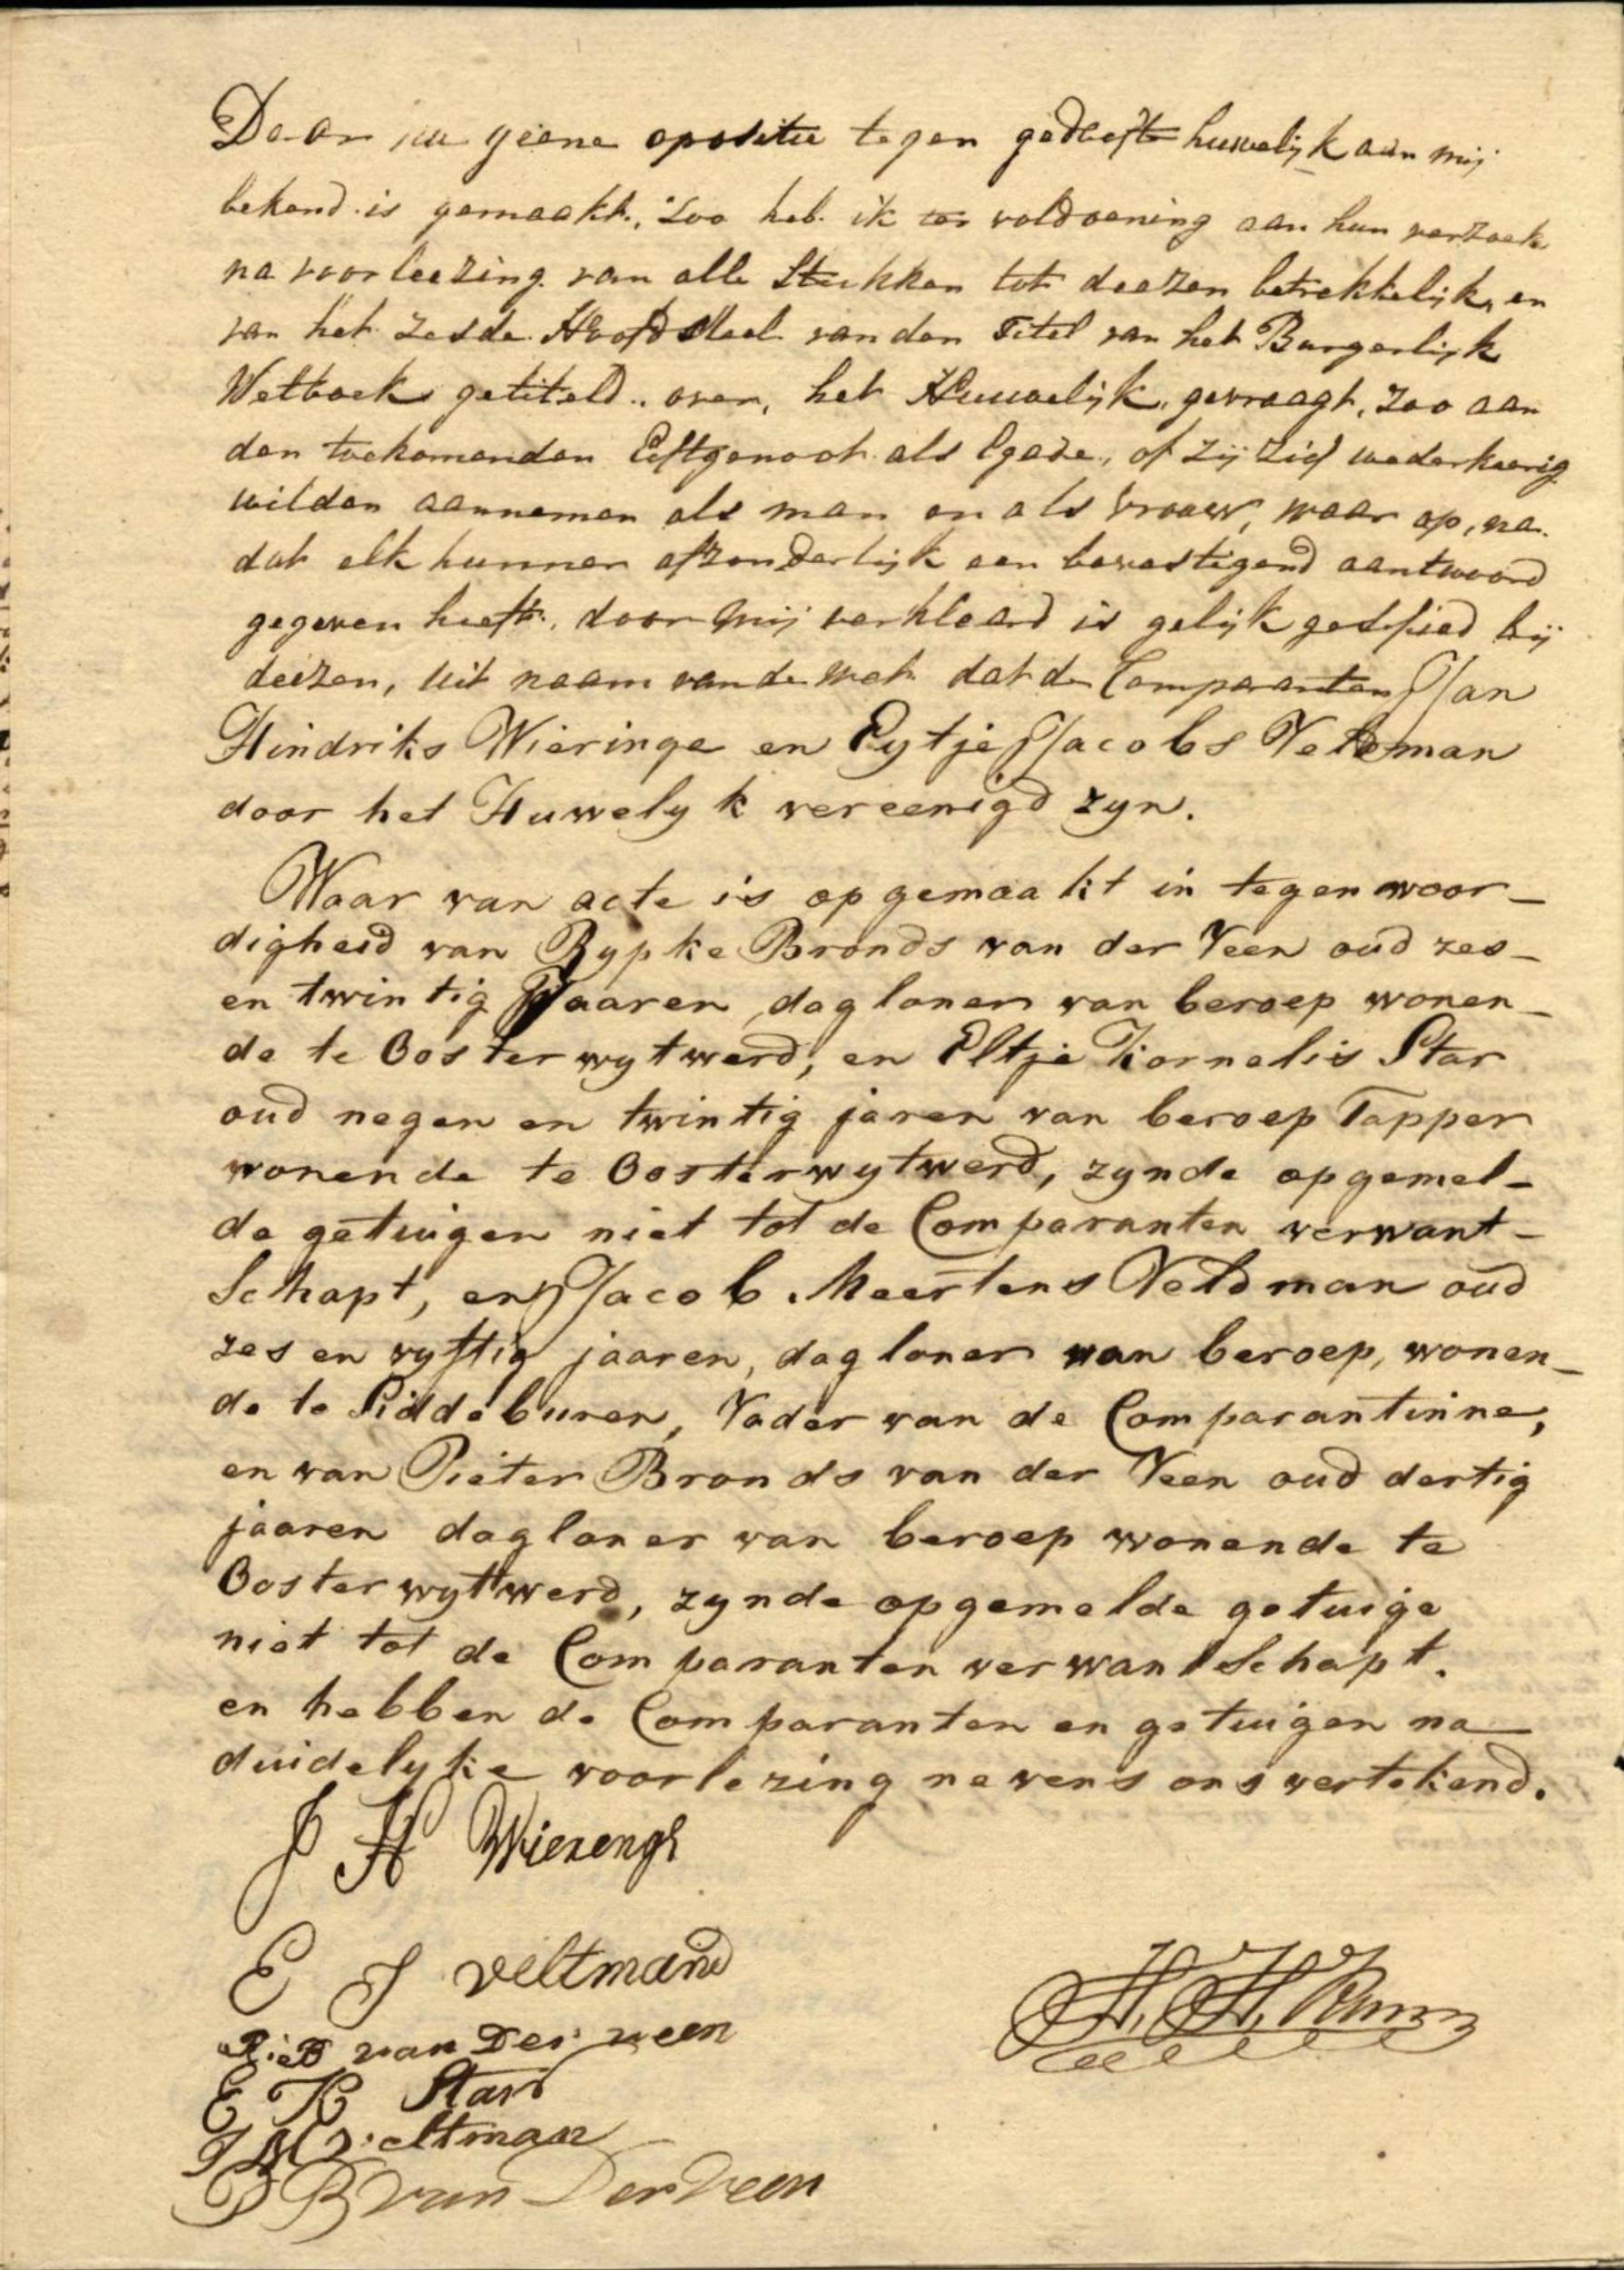 Daar nu geene opositie tegen gedacht huwelijk aan mij
bekend is gemaakt, Zoo heb ik ter voldoening aan hun verzoek
na voorleezing van alle Stukken tot deezen betrekkelijk, en
van het zesde Hoofdsteel van den Titel van het Burgerlijk
Wetboek getiteld „over het Huwelijk„ gevraagt, Zoo aan
den toekomenden Echtgenoot als Egade, of zij zich wederkeerig
wilden aannemen als man en als Vrouw, waar op, na
dat elk hunner afzonderlijk een bevestigend aantwoord
gegeven heeft, door mij verklaard is gelijk geschied bij
deezen, uit naam van de wet dat de Comparanten Jan
Hindriks Wieringe en Eytje Jacobs Veldman
door het Huwelyk vereenigd zyn.
Waar van acte is opgemaakt in tegenwoor-
digheid van Rypke Bronds van der Veen oud zes-
en twintig Jaaren dagloner van beroep wonen-
de te Oosterwytwerd, en Eltje Kornelis Star
oud negen en twintig jaren van beroep Tapper
wonende te Oosterwytwerd, zynde opgemel-
de getuigen niet tot de Comparanten verwant-
Schapt, en Jacob Meertens Veldman oud
zes en vyftig jaaren, dagloner van beroep, wonen-
de te Siddeburen, Vader van de Comparantinne,
en van Pieter Bronds van der Veen oud dertig
jaaren dagloner van beroep wonende te
Oosterwytwerd, zynde opgemelde getuige
niet tot de Comparanten verwantSchapt.
en hebben de Comparanten en getuigen na
duidelyke voorlezing nevens ons vertekend.
J H Wierenga
E J veltman
van Der veen
E K Star
J M veltman
P B van Der Veen
H. H.